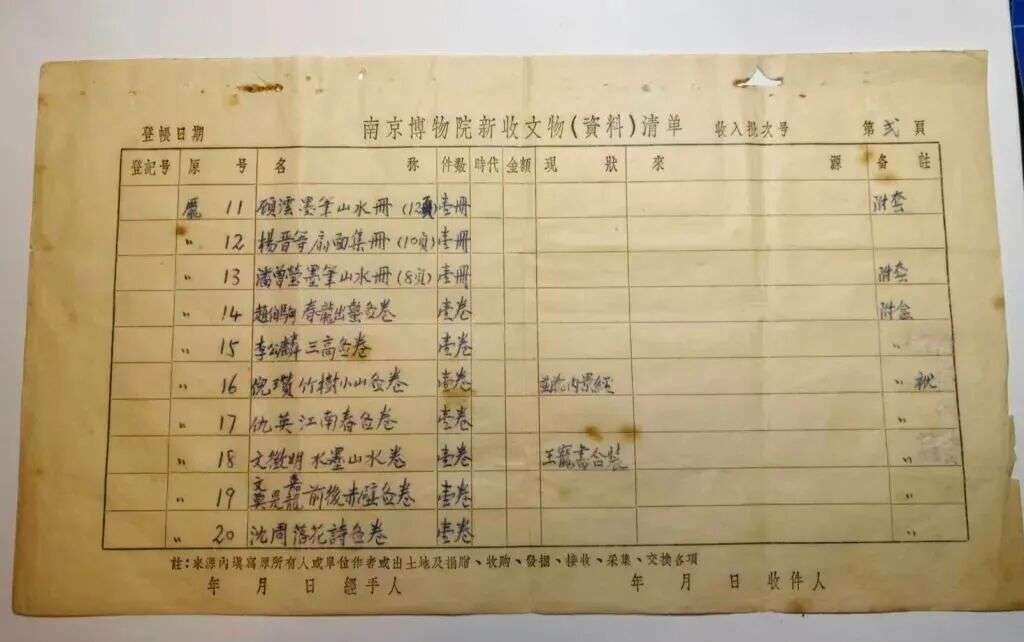 登帳日期 南京博物院新收文物(資料)清单 收入批次号 第貳頁
登記号 原号 名称 件数 時代 金額 現狀 來源 备註
龐 11 顧澐墨筆山水冊(12頁) 壹冊 附套
〃 12 楊晋等扇面集冊(10頁) 壹冊
〃 13 潘曾瑩墨筆山水冊(8頁) 壹冊 附套
〃 14 趙伯駒春龍出蟄图卷 壹卷 附盒
〃 15 李公麟三高图卷 壹卷
〃 16 倪瓚竹樹小山图卷 壹卷 内景經 〃
〃 17 仇英江南春图卷 壹卷 〃
〃 18 文徵明水墨山水卷 壹卷 王寵書合裝 〃
〃 19 文嘉莫是龍前後赤壁图卷 壹卷 〃
〃 20 沈周落花詩图卷 壹卷 〃
註:來源内填寫原所有人或單位作者或出土地及捐贈、收购、發掘、接收、采集、交換各項
年 月 日 經手人 年 月 日 收件人